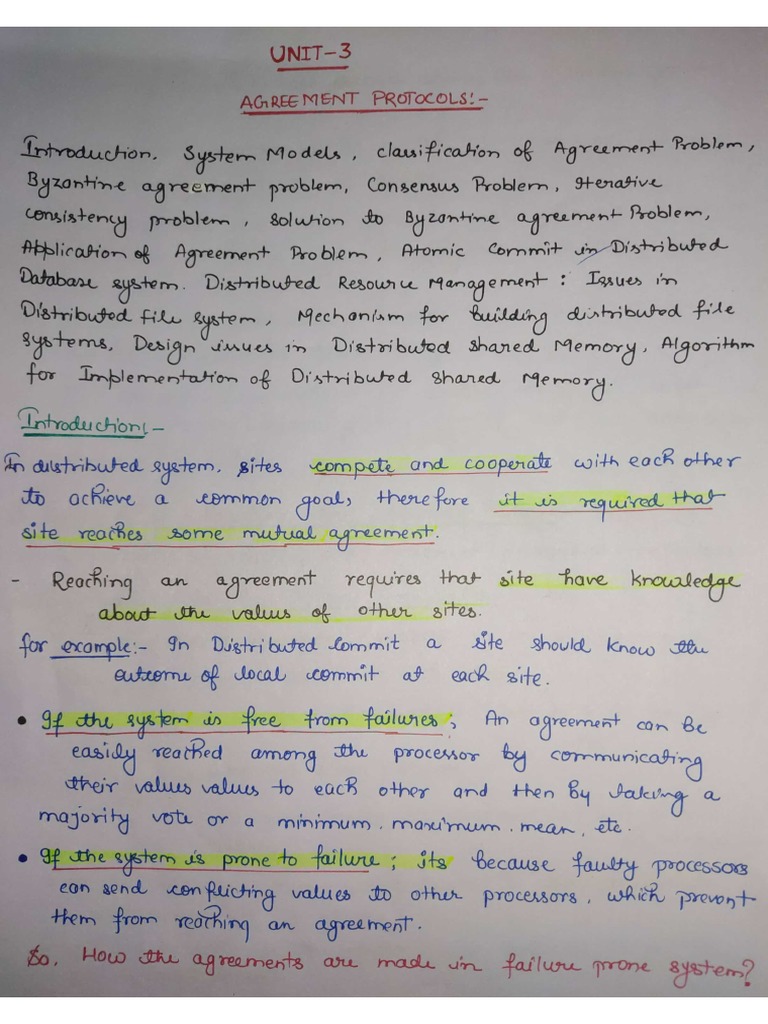 UNIT-3
AGREEMENT PROTOCOLS:-
Introduction. System Models, classification of Agreement Problem,
Byzantine agreement problem, Consensus Problem, Iterative
consistency problem, solution to Byzantine agreement Problem,
Application of Agreement Problem, Atomic Commit in Distributed
Database system. Distributed Resource Management: Issues in
Distributed file system, Mechanism for building distributed file
systems, Design issues in Distributed shared Memory, Algorithm
for Implementation of Distributed shared Memory.
Introduction:-
In distributed system, sites compete and cooperate with each other
to achieve a common goal, therefore it is required that
site reaches some mutual agreement.
- Reaching an agreement requires that site have knowledge
about the values of other sites.
for example:- In Distributed Commit a site should know the
outcome of local commit at each site.
• If the system is free from failures; An agreement can be
easily reached among the processor by communicating
their values values to each other and then by taking a
majority vote or a minimum, maximum, mean, etc.
• If the system is prone to failure; its because faulty processors
can send conflicting values to other processors, which prevent
them from reaching an agreement.
So, How the agreements are made in failure prone system?